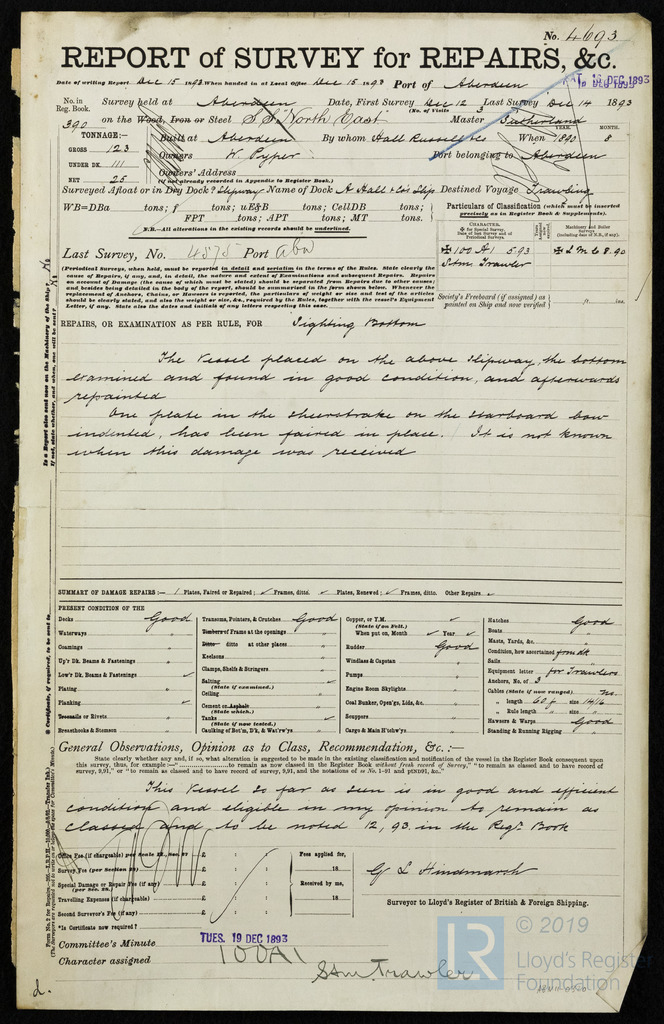 No. 4693
REPORT of SURVEY for REPAIRS, &c.
Date of writing Report Dec 15 1893 When handed in at Local Office Dec 15 1893 Port of Aberdeen
SAT. 16 DEC 1893
No. in Reg. Book. Survey held at Aberdeen Date, First Survey Dec 12 Last Survey Dec 14 1893
(No. of Visits 3
390 on the Wood, Iron or Steel S.S. North East Master Sutherland
TONNAGE:— Built at Aberdeen By whom Hall Russell & Co When 1890 8
YEAR. MONTH.
GROSS 123 Owners W. Pyper Port belonging to Aberdeen
UNDER DK. 111 Owners' Address
(if not already recorded in Appendix to Register Book.)
NET 25
Surveyed Afloat or in Dry Dock? Slipway Name of Dock A Hall & Co's Slip Destined Voyage Trawling
WB=DBa tons; f tons; uE&B tons; CellDB tons;
FPT tons; APT tons; MT tons.
N.B.—All alterations in the existing records should be underlined.
Particulars of Classification (which must be inserted precisely as in Register Book & Supplements).
CHARACTER.
✠ for Special Survey.
Date of last Survey and of Periodical Surveys.
Machinery and Boiler Surveys
(including date of N.B., if any).
✠ 100 A1 5.93
Stm Trawler
✠ LMC 8.90
Last Survey, No. 4575 Port Abn
(Periodical Surveys, when held, must be reported in detail and seriatim in the terms of the Rules. State clearly the
cause of Repairs, if any, and, in detail, the nature and extent of Examinations and subsequent Repairs. Repairs
on account of Damage (the cause of which must be stated) should be separated from Repairs due to other causes;
and, besides being detailed in the body of the report, should be summarised in the form shown below. Whenever the
replacement of Anchors, Chains, or Hawsers is reported, the particulars of weight or size and test of the articles
should be clearly stated, and also the weight or size, &c., required by the Rules, together with the vessel's Equipment
Letter, if any. State also the dates and initials of any letters respecting this case.)
Society's Freeboard (if assigned) as painted on Ship and now verified ft. ins.
REPAIRS, OR EXAMINATION AS PER RULE, FOR Sighting Bottom
The Vessel placed on the above slipway, the bottom
examined and found in good condition, and afterwards
repainted
One plate in the sheerstrake on the starboard bow
indented, has been faired in place. It is not known
when this damage was received
SUMMARY OF DAMAGE REPAIRS:— 1 Plates, Faired or Repaired; Frames, ditto. Plates, Renewed; Frames, ditto. Other Repairs.
PRESENT CONDITION OF THE
Decks Good
Waterways "
Coamings "
Up'r Dk. Beams & Fastenings
Low'r Dk. Beams & Fastenings
Plating "
Planking
Treenails or Rivets "
Breasthooks & Stemson "
Transoms, Pointers, & Crutches Good
Timbers of Frame at the openings "
Ditto ditto at other places "
Keelsons "
Clamps, Shelfs & Stringers "
Salting
(State if examined.)
Ceiling "
Cement or Asphalt
(State which.)
Tanks
(State if now tested.)
Caulking of Bot'm, D'k, & Wat'rw'ys "
Copper, or Y.M.
(State if on Felt.)
When put on, Month Year
Rudder Good
Windlass & Capstan "
Pumps "
Engine Room Skylights "
Coal Bunker, Open'gs, Lids, &c. "
Scuppers "
Cargo & Main H'tchw'ys "
Hatches Good
Boats "
Masts, Yards, &c. "
Condition, how ascertained from dk
Sails
Equipment letter for Trawlers
Anchors, No. of 3
Cables (State if now ranged) no.
" length 60 f. size 14/16
" Rule length " size
Hawsers & Warps Good
Standing & Running Rigging "
General Observations, Opinion as to Class, Recommendation, &c. :—
State clearly whether any, and if so, what alteration is suggested to be made in the existing classification and notification of the vessel in the Register Book consequent upon
this survey, thus, for example:—"..............to remain as now classed in the Register Book without fresh record of Survey," "to remain as classed and to have record of
survey, 9,91," or "to remain as classed and to have record of survey, 9,91, and the notations of ss No. 1-91 and ptND91, &c."
This Vessel so far as seen is in good and efficient
condition and eligible in my opinion to remain as
classed and to be noted 12,93 in the Regr. Book
Office Fee (if chargeable) per Scale £ : :
Survey Fee (per Section 28) £ : :
Special Damage or Repair Fee (if any) £ : :
(per Sec. 28.)
Travelling Expenses (if chargeable) £ : :
Second Surveyor's Fee (if any) £ : :
Fees applied for,
18
Received by me,
18
G L Hindmarsh
Surveyor to Lloyd's Register of British & Foreign Shipping.
*Is Certificate now required?
Committee's Minute TUES. 19 DEC 1893
Character assigned 100A1
Stm. Trawler
d.
LR
© 2019
Lloyd's Register
Foundation